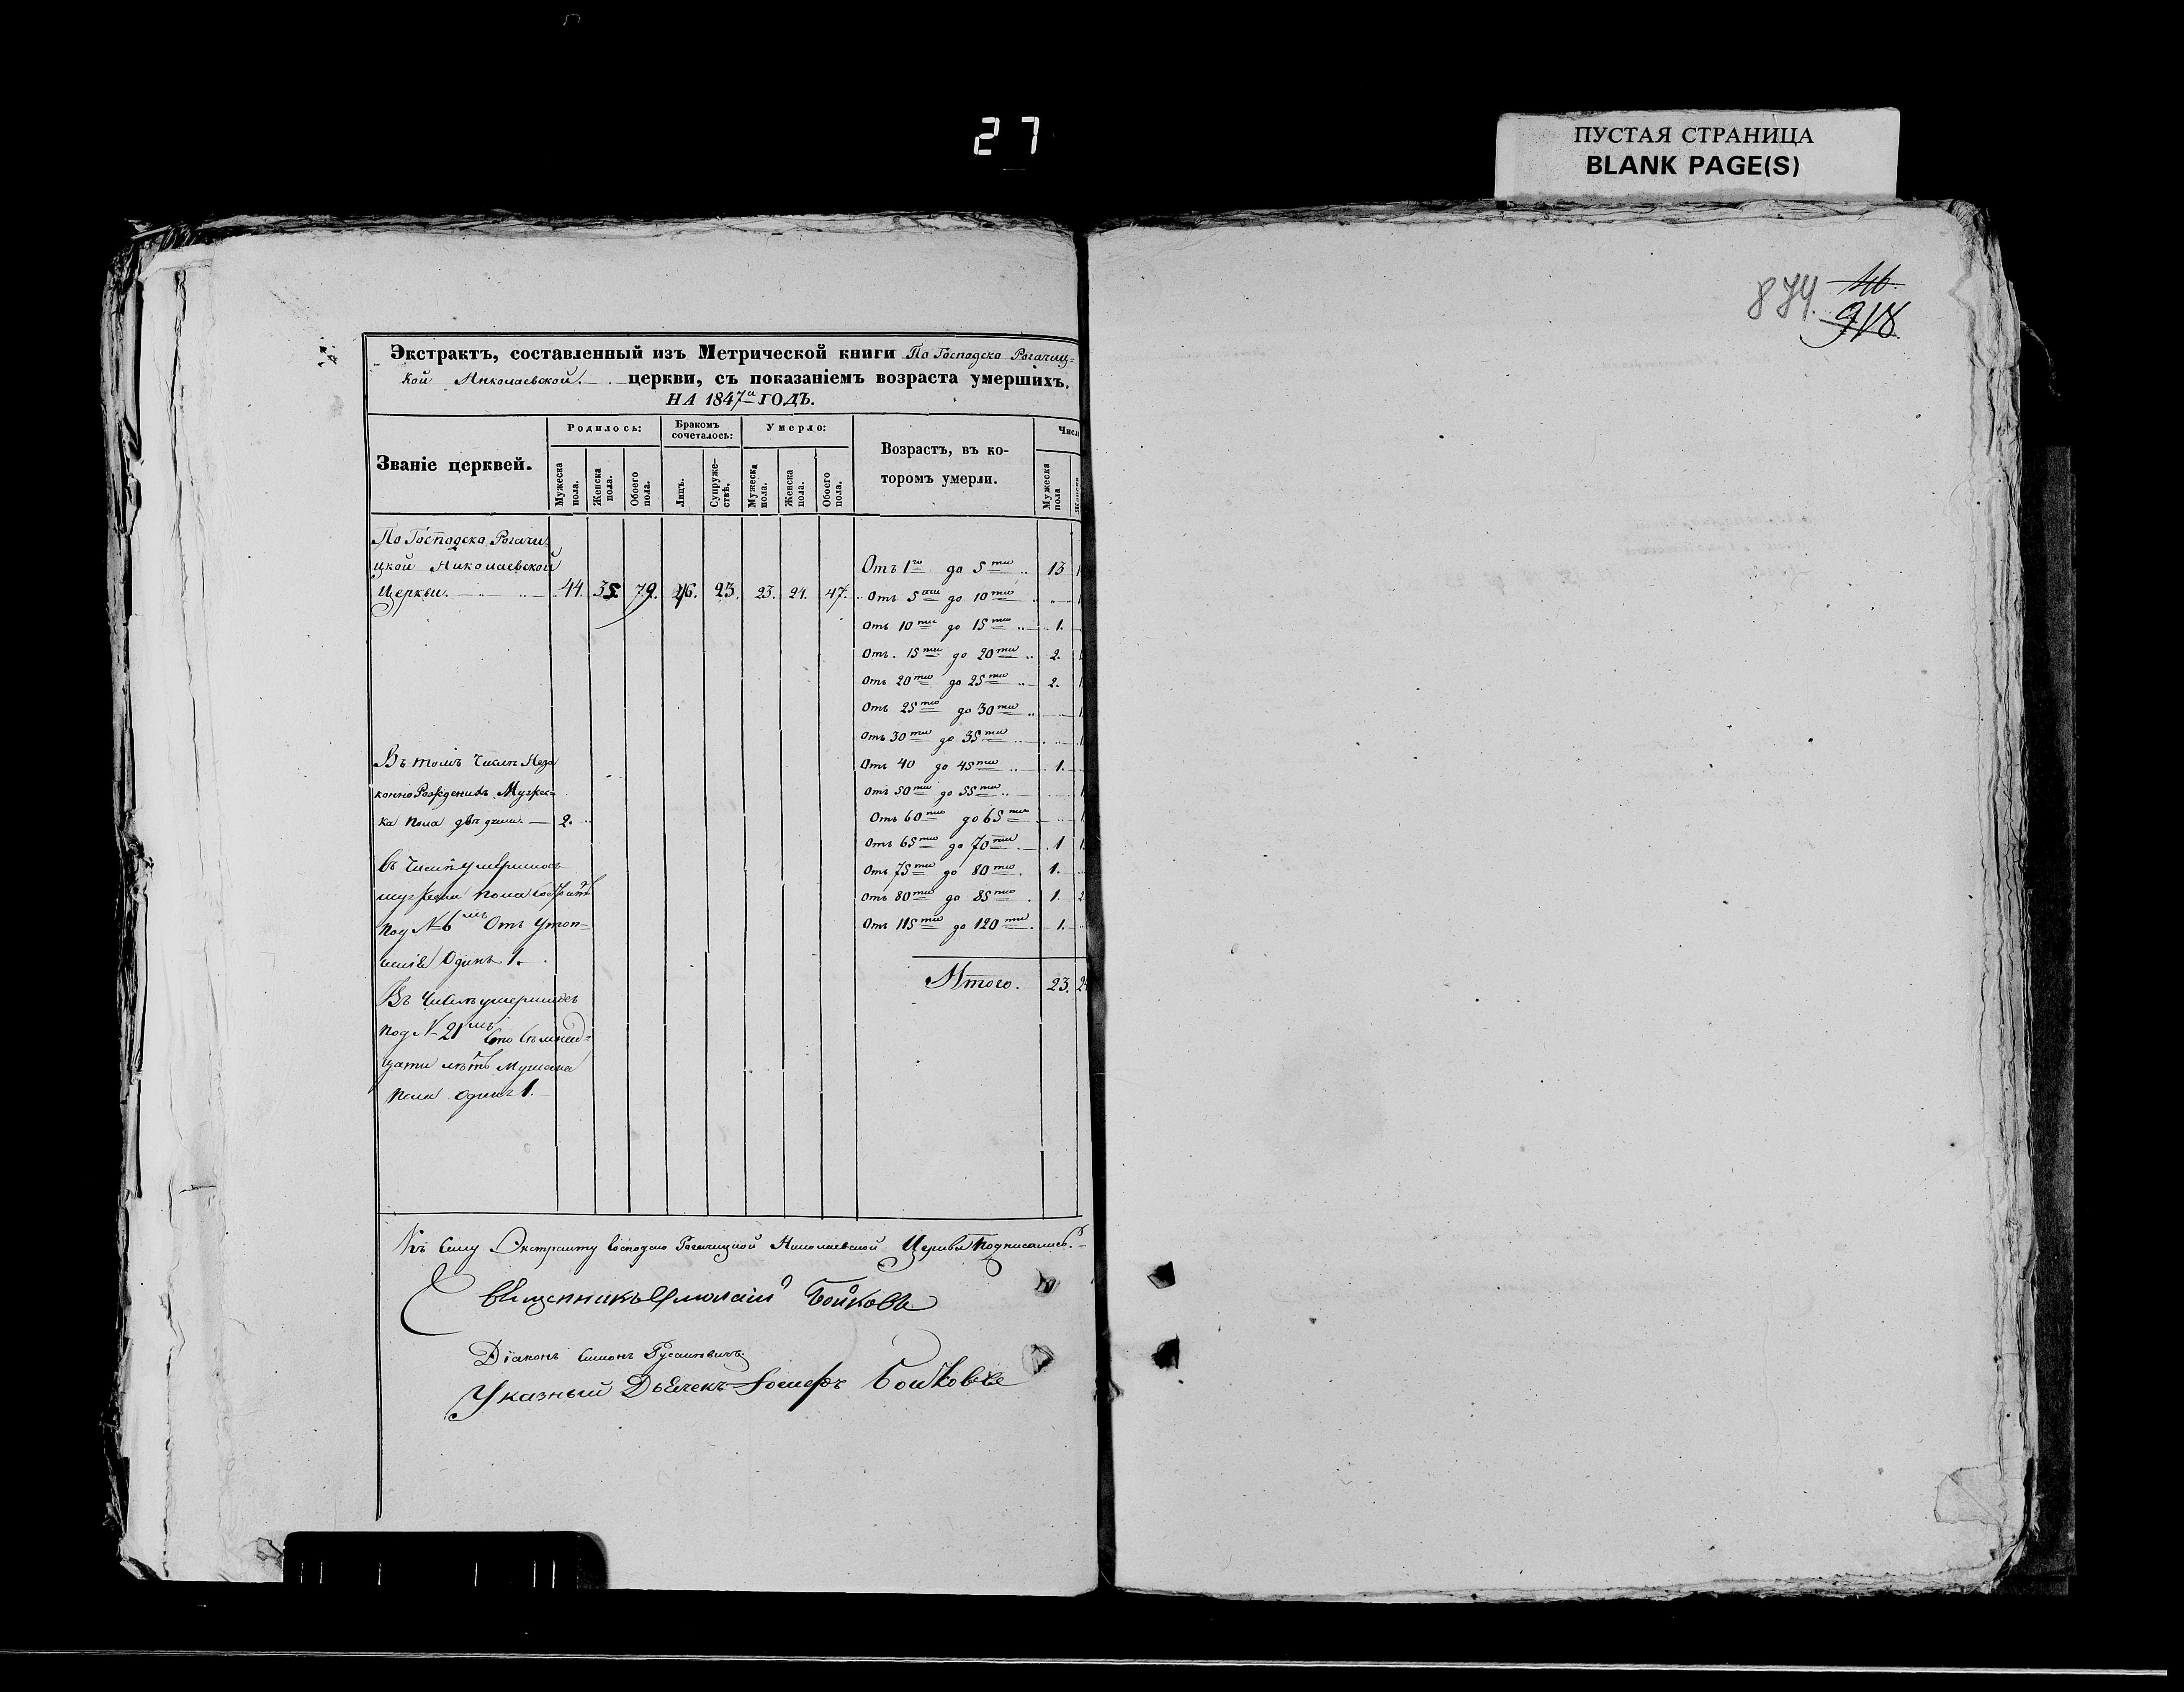 27
ПУСТАЯ СТРАНИЦА
BLANK PAGE(S)
874.
918
Экстрактъ, составленный изъ Метрической книги По Господско Рогачиц=
кой Николаевской. церкви, съ показаніемъ возраста умершихъ.
НА 1847й ГОДЪ.
Званіе церквей.
Родилось:
Бракомъ сочеталось:
Умерло:
Возрастъ, въ ко-
торомъ умерли.
Числ
Мужеска пола.
Женска пола.
Обоего пола.
Лицъ.
Супруже-ствъ.
Мужеска пола.
Женска пола.
Обоего пола.
Мужеска пола
По Господско Рогачи
цкой Николаевской
Церкви. 44. 35. 79. 46. 23. 23. 24. 47.
Отъ 1го до 5ти 13
Отъ 5ти до 10ти
Отъ 10ти до 15ти 1.
Отъ 15ти до 20ти 2.
Отъ 20ти до 25ти 2.
Отъ 25ти до 30ти
Отъ 30ти до 35ти
Отъ 40 до 45ти 1.
Отъ 50ти до 55ти
Отъ 60ти до 65ти
Отъ 65ти до 70ти 1
Отъ 75ти до 80ти 1.
Отъ 80ти до 85ти 1. 2
Отъ 115ти до 120ти 1.
Итого. 23. 2
Въ томъ числѣ Неза
конно Рожденныхъ Мужес=
ка пола двѣ души. 2.
въ числѣ умершихъ
мужеска пола
под №6мъ Отъ Утоп=
ленія Одинъ 1.
Въ числѣ умершихъ
под № 21мъ Сто
цати лѣтъ Мужеска
пола одинъ 1.
Къ сему Экстракту Господско Рогачицкой Николаевской Церкви подписались.
Священникъ Бойковъ
Діаконъ Симонъ
Указный Дьячекъ Іосифъ Бойковъ